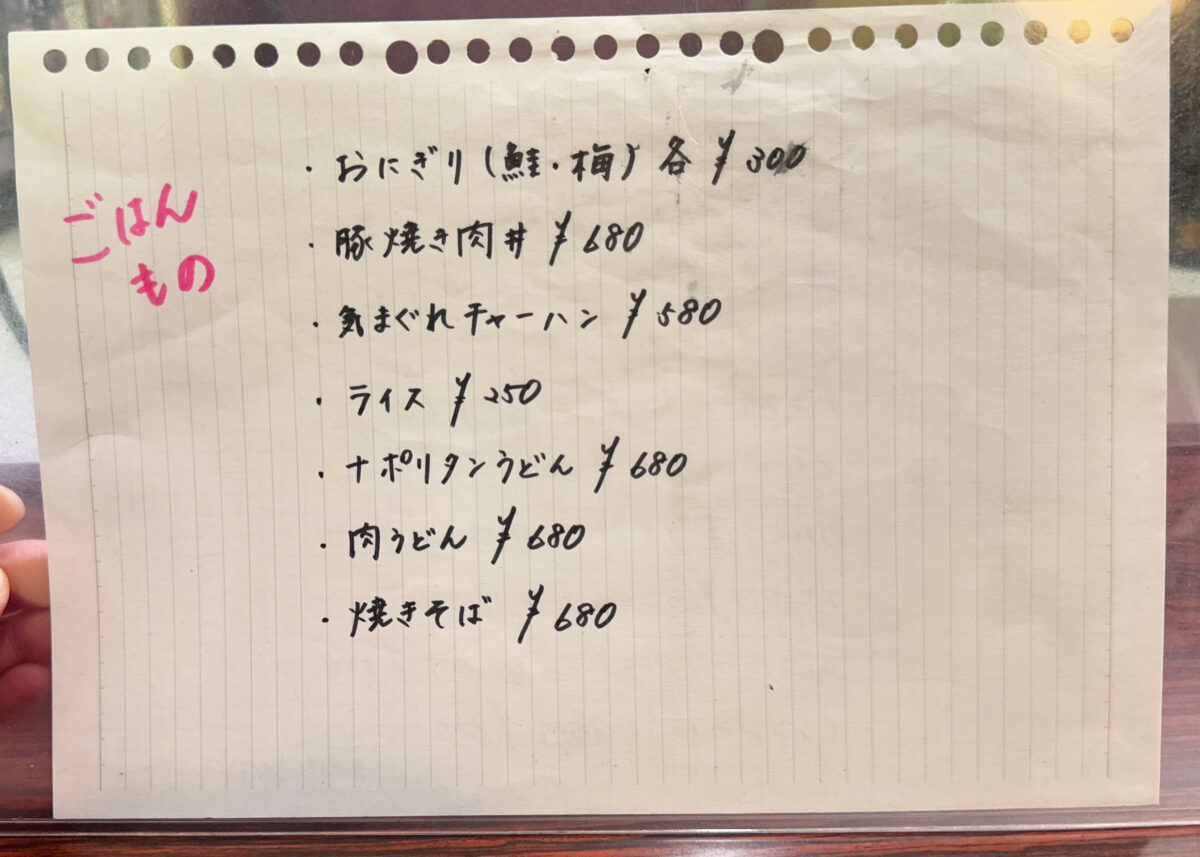 ごはん
もの
・おにぎり(鮭・梅)各 ¥300
・豚焼き肉丼 ¥680
・気まぐれチャーハン ¥580
・ライス ¥250
・ナポリタンうどん ¥680
・肉うどん ¥680
・焼きそば ¥680